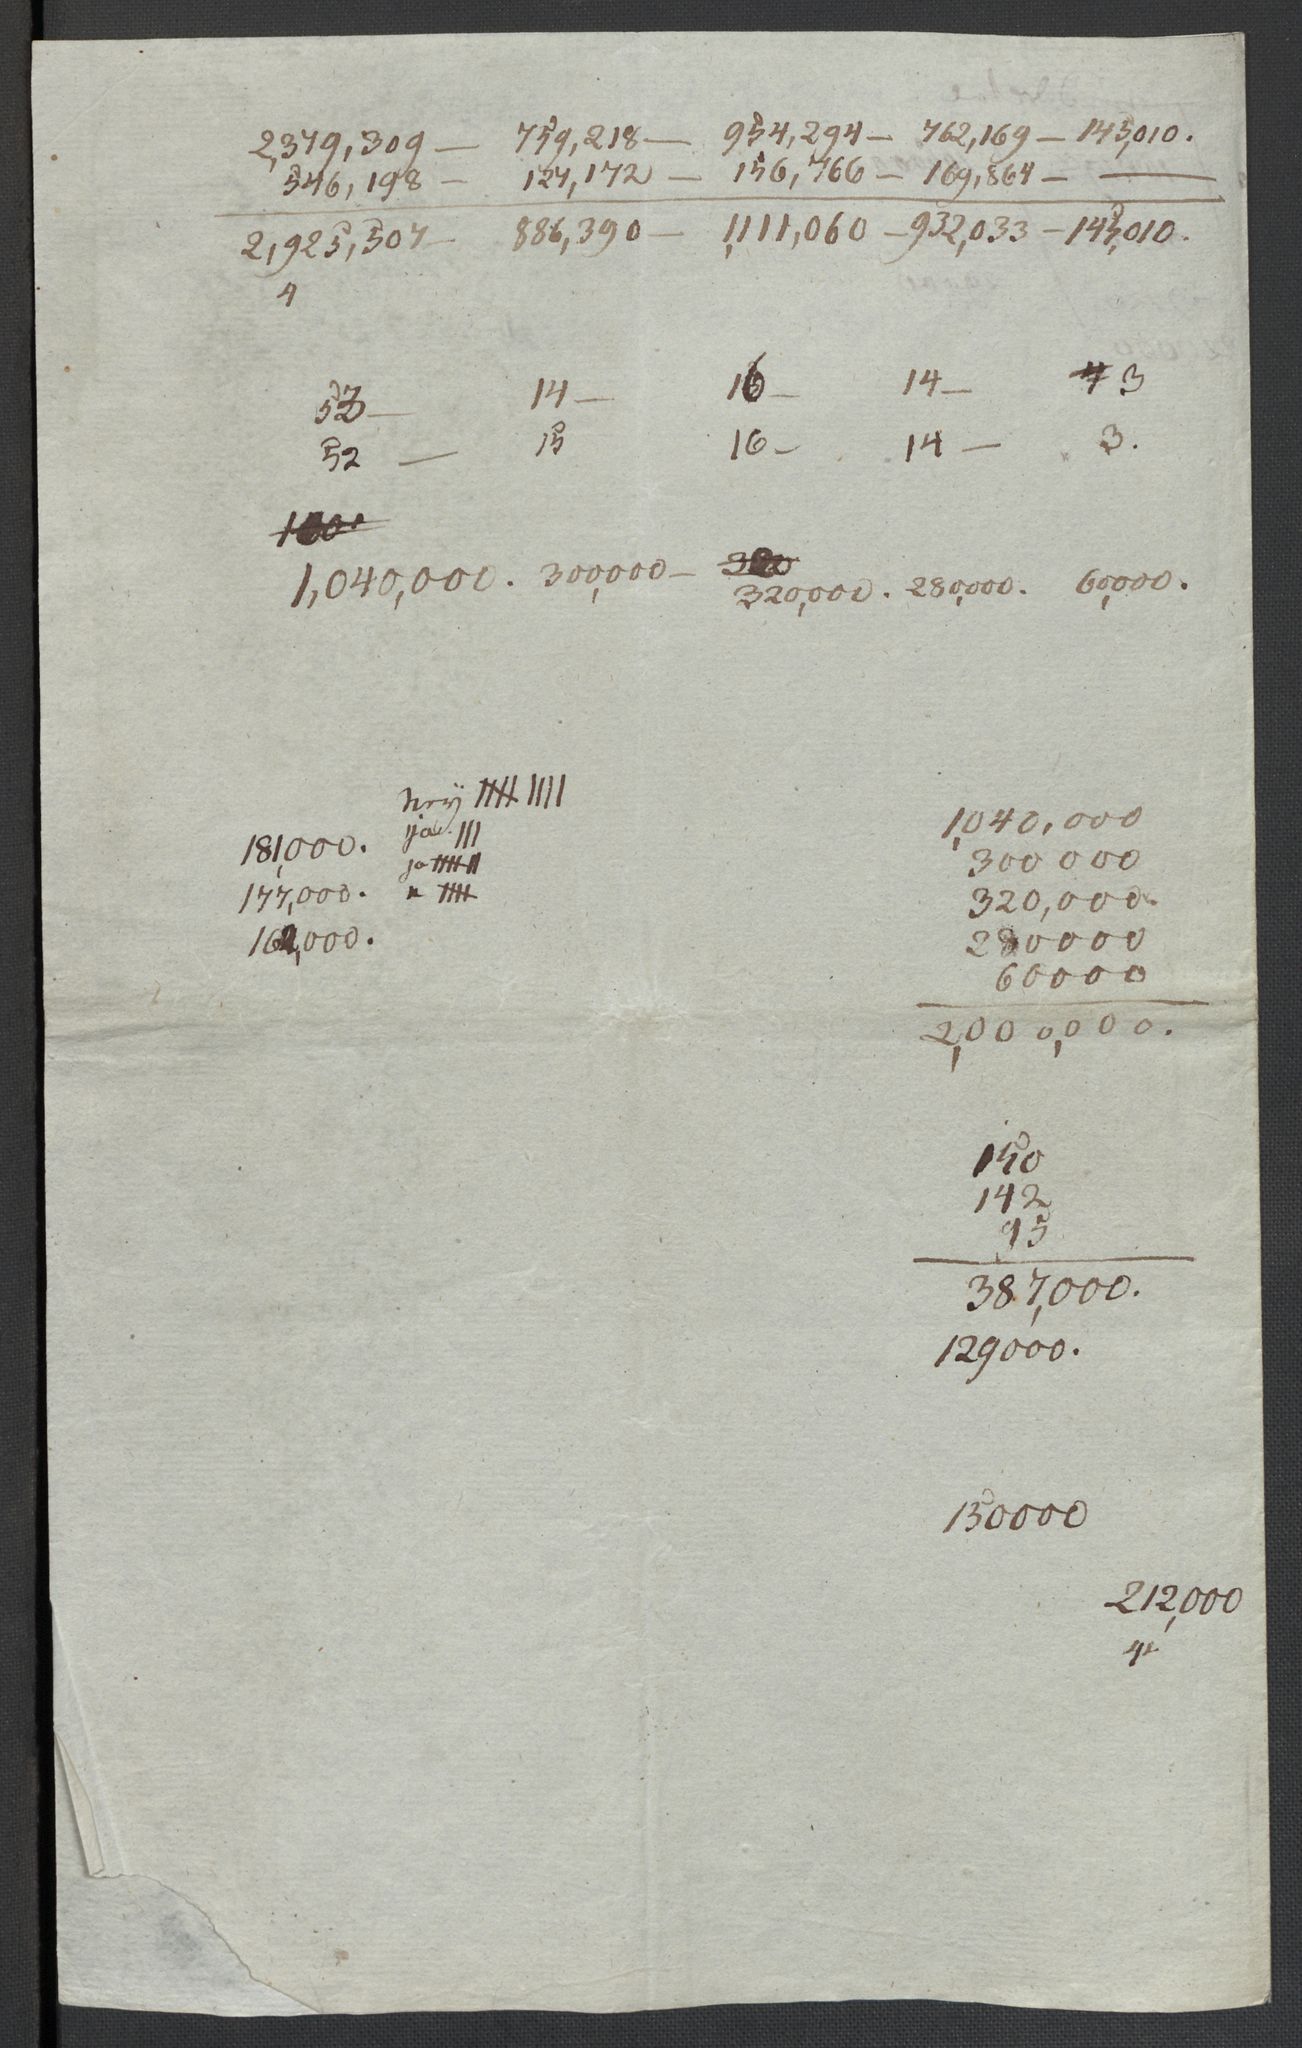 2,379,309 — 759,218 — 954,294 — 762,169 — 145,010.
546,198 — 127,172 — 156,766 — 169,864 — —
2,925,507 — 886,390 — 1,111,060 — 932,033 — 145,010.
4
14 — 16 — 14 — 4 3
52 — 15 16 — 14 — 3.
1,040,000. 300,000 — 320
320,000. 280,000. 60,000.
neÿ
181,000. ja
ja
177,000. n
162,000.
1,040,000
300000
320,000.
280000
60000
2,000,000.
150
142
95
387,000.
129000.
150000
212,000
4